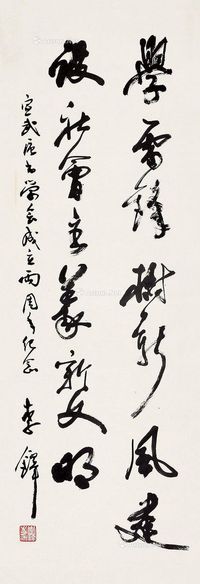 學雷鋒樹新風建
設社會主義新文明
宣武區書學會成立兩周年紀念 李鐸